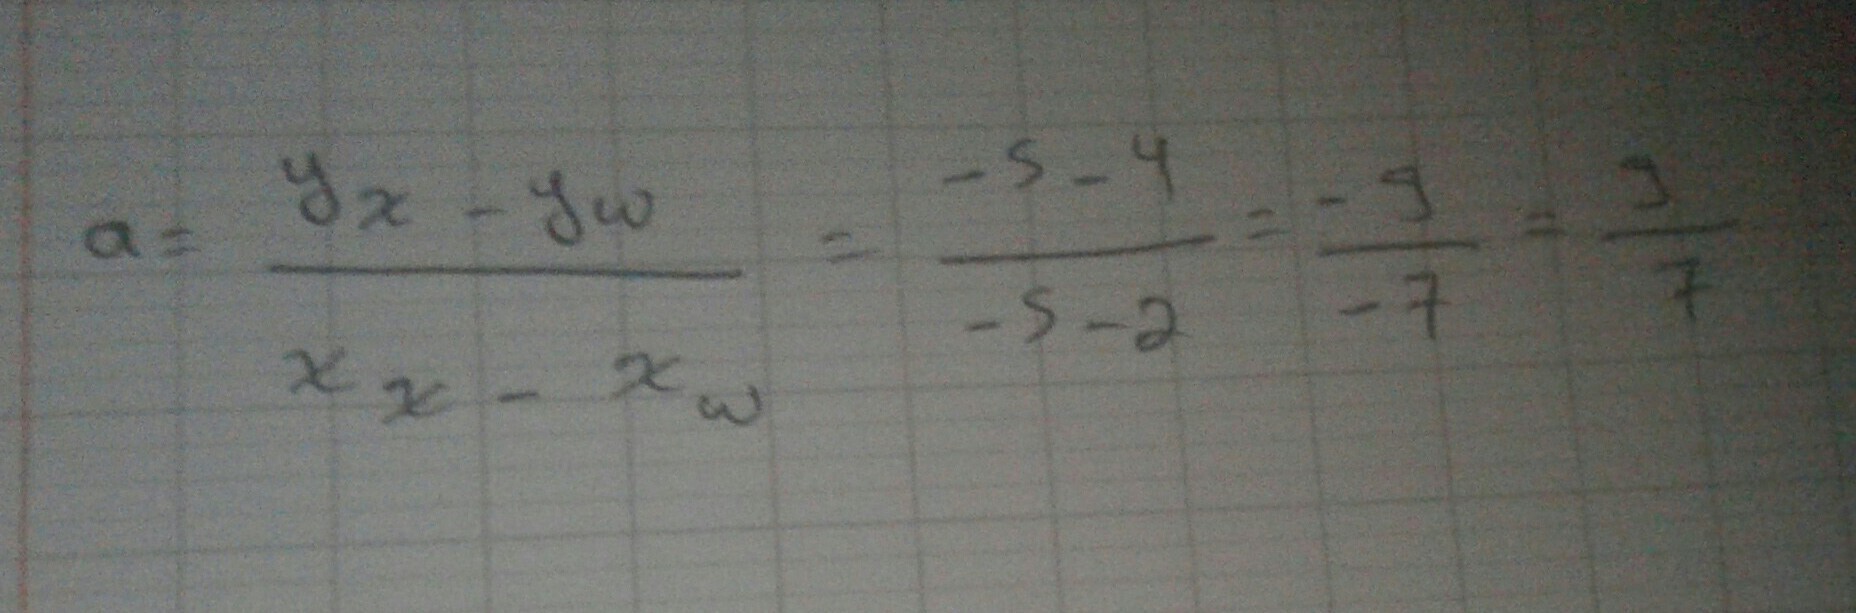 a = \frac{y_x - y_w}{x_x - x_w} = \frac{-5-4}{-5-2} = \frac{-9}{-7} = \frac{9}{7}